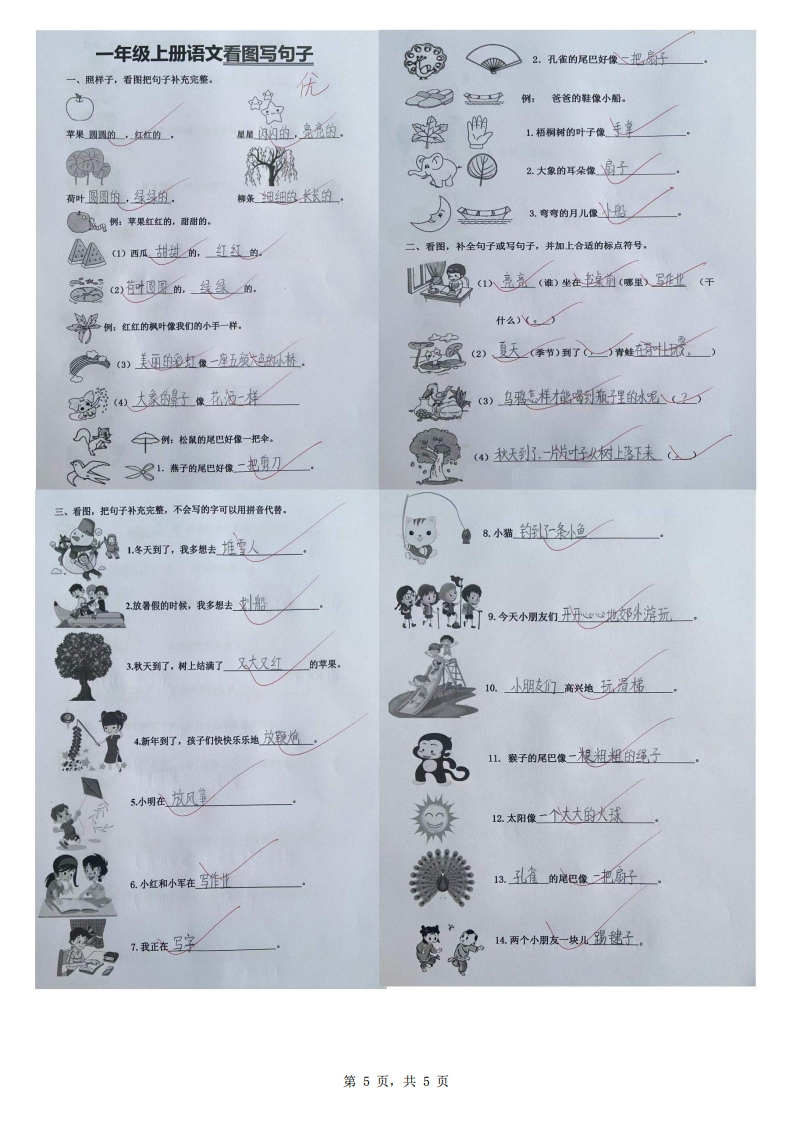 一年级上册语文看图写句子
一、照样子，看图把句子补充完整。
优
苹果 圆圆的 ，红红的 。 星星 闪闪的 ，亮亮的 。
荷叶 圆圆的 ，绿绿的 。 柳条 细细的 长长的 。
例：苹果红红的，甜甜的。
（1）西瓜 甜甜 的， 红红 的。
（2）荷叶圆圆 的， 绿绿 的。
例：红红的枫叶像我们的小手一样。
（3） 美丽的彩虹 像 一座五颜六色的小桥 。
（4） 大象的鼻子 像 花洒一样
例：松鼠的尾巴好像一把伞。
1．燕子的尾巴好像 一把剪刀 。
2．孔雀的尾巴好像 一把扇子 。
例： 爸爸的鞋像小船。
1.梧桐树的叶子像 手掌 。
2.大象的耳朵像 扇子 。
3.弯弯的月儿像 小船 。
二、看图，补全句子或写句子，并加上合适的标点符号。
（1） 亮亮 （谁）坐在 书桌前 （哪里） 写作业 （干
什么）（ 。 ）
（2） 夏天 （季节）到了（ ， ）青蛙 在荷叶上玩耍 。）
（3） 乌鸦怎样才能喝到瓶子里的水呢 （ ？ ）
（4） 秋天到了，一片片叶子从树上落下来 （ 。 ）
三、看图，把句子补充完整，不会写的字可以用拼音代替。
1.冬天到了，我多想去 堆雪人 。
2.放暑假的时候，我多想去 划船 。
3.秋天到了，树上结满了 又大又红 的苹果。
4.新年到了，孩子们快快乐乐地 放鞭炮 。
5.小明在 放风筝 。
6.小红和小军在 写作业 。
7.我正在 写字 。
8.小猫 钓到了一条小鱼 。
9.今天小朋友们 开开心心地郊外游玩 。
10． 小朋友们 高兴地 玩滑梯 。
11．猴子的尾巴像 一根粗粗的绳子 。
12．太阳像 一个大大的火球 。
13． 孔雀 的尾巴像 一把扇子 。
14．两个小朋友一块儿 踢毽子 。
第 5 页，共 5 页